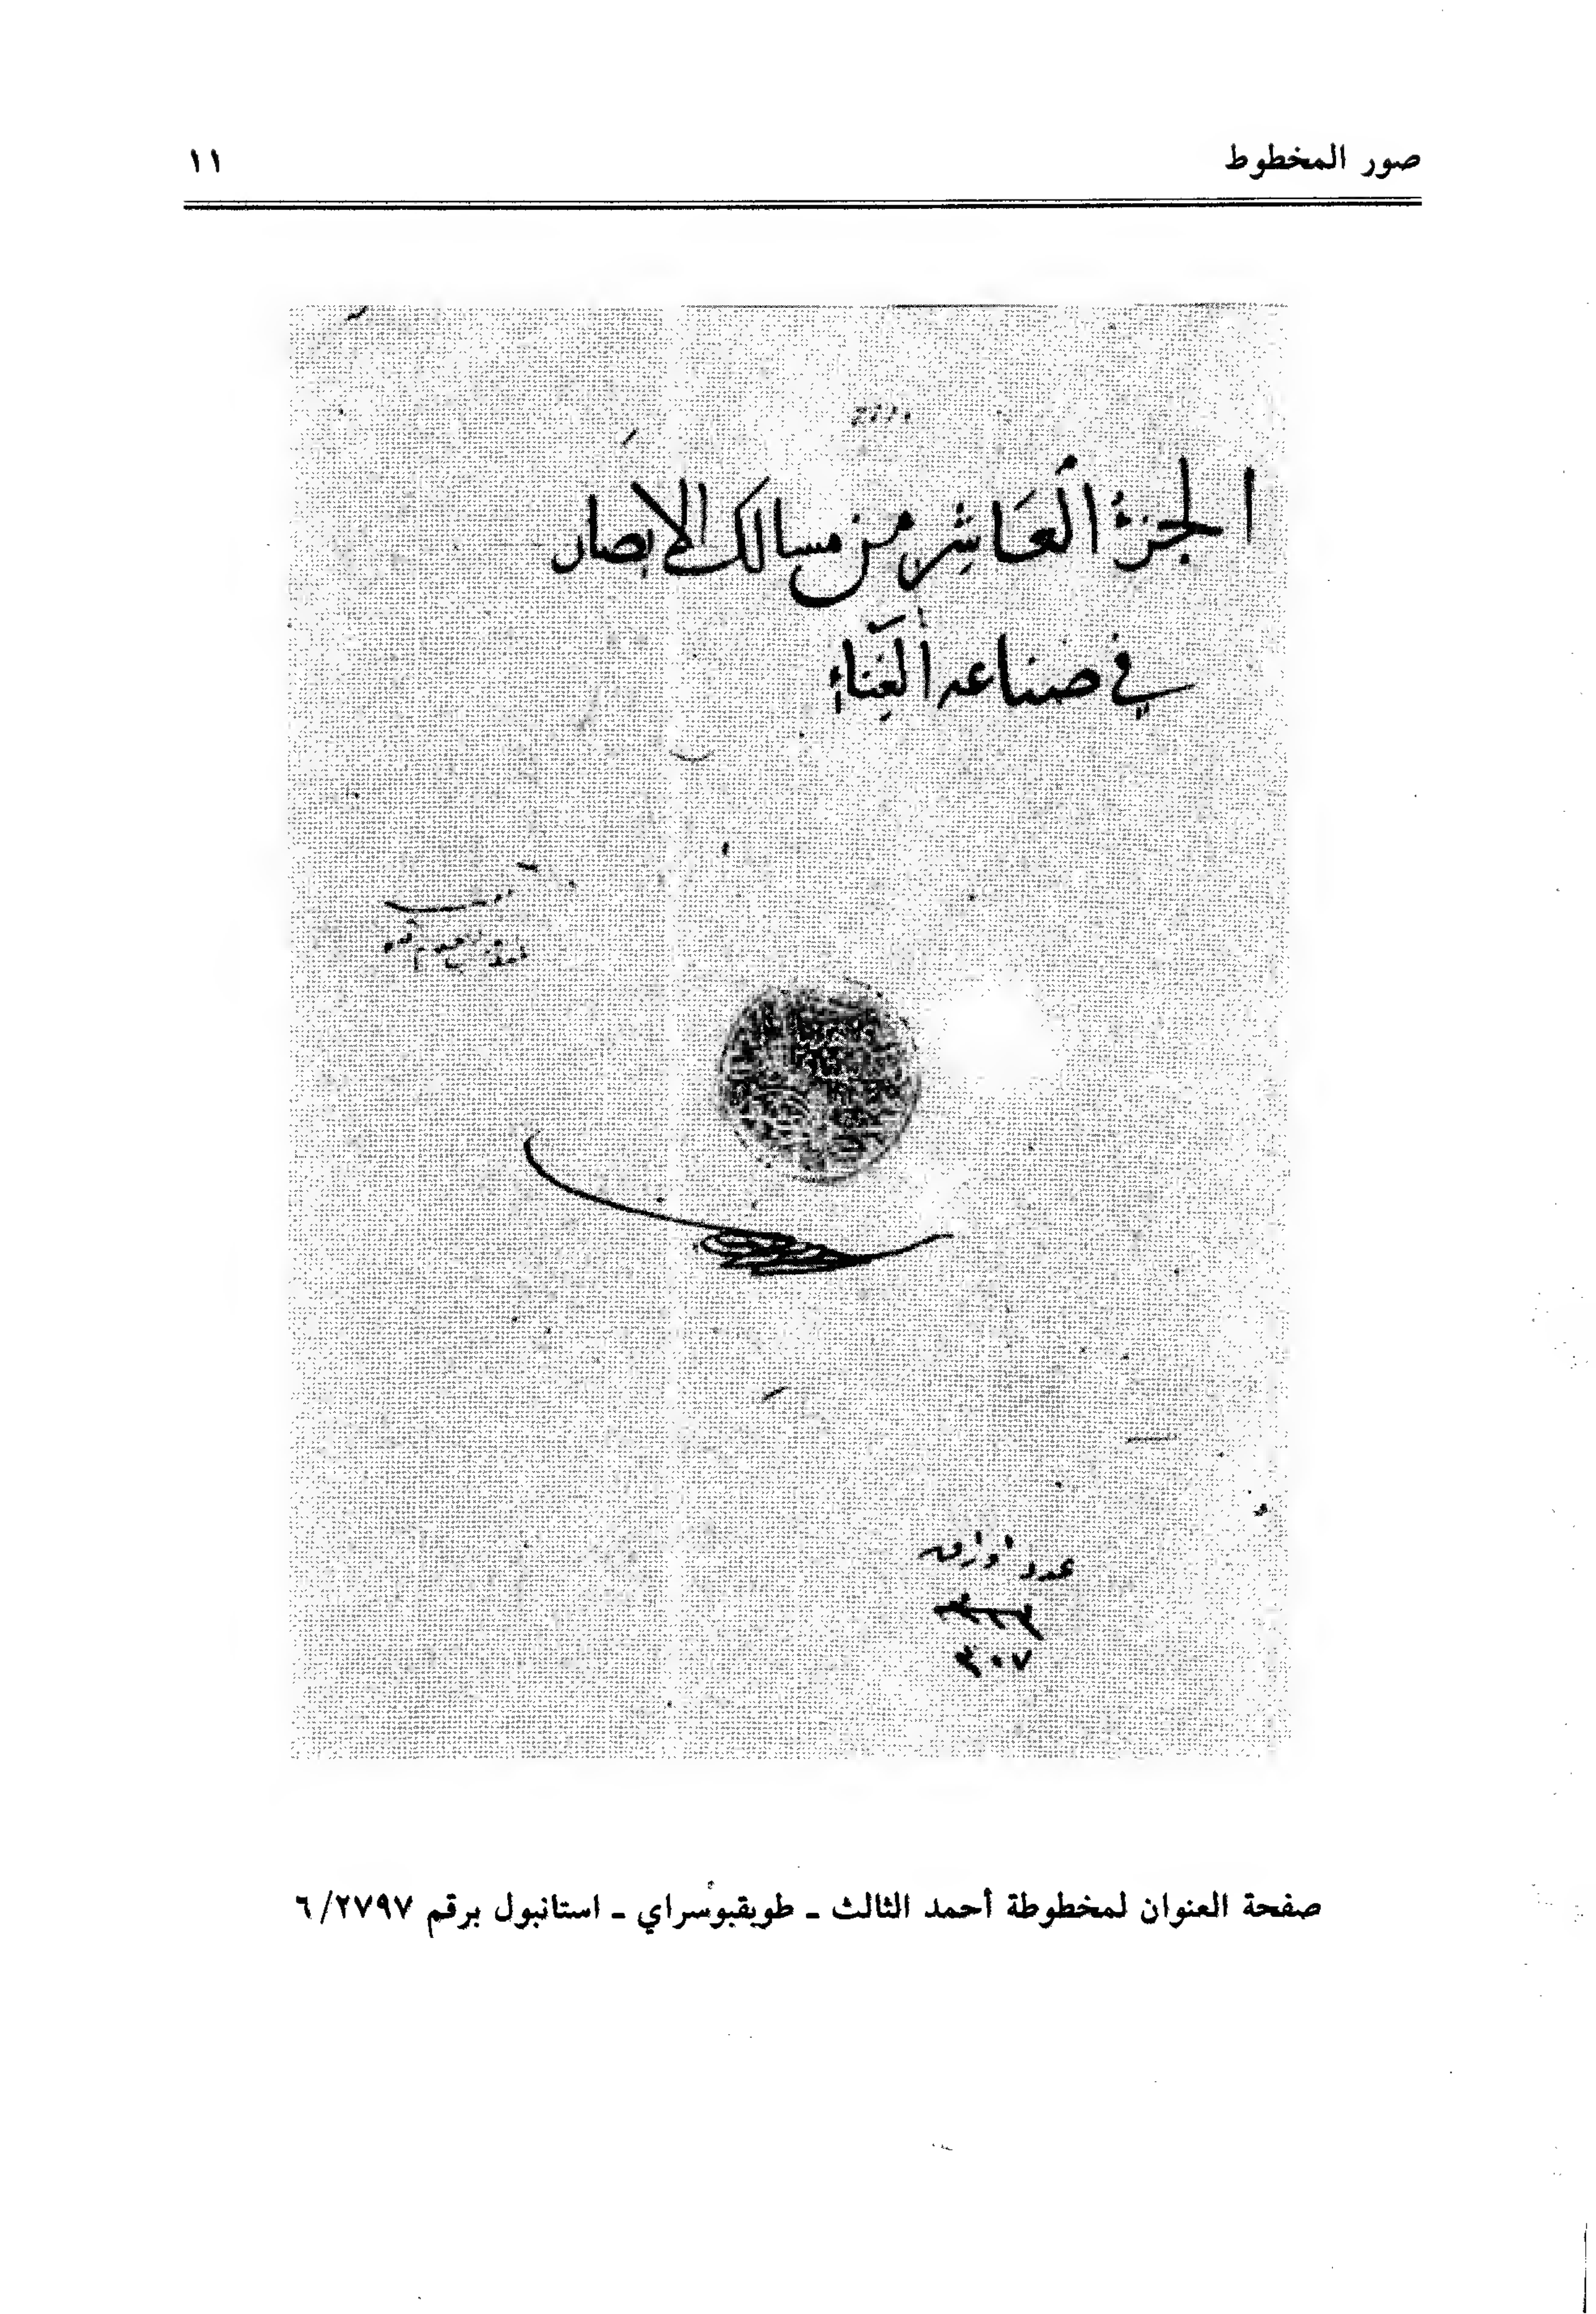 صور المخطوط
١١
الجزء العاشر من مسالك الابصار
في صناعه الغناء
عدد اوراق
٢٠٧
صفحة العنوان لمخطوطة أحمد الثالث ـ طوبقبوسراي ـ استانبول برقم ٢٧٩٧/٦